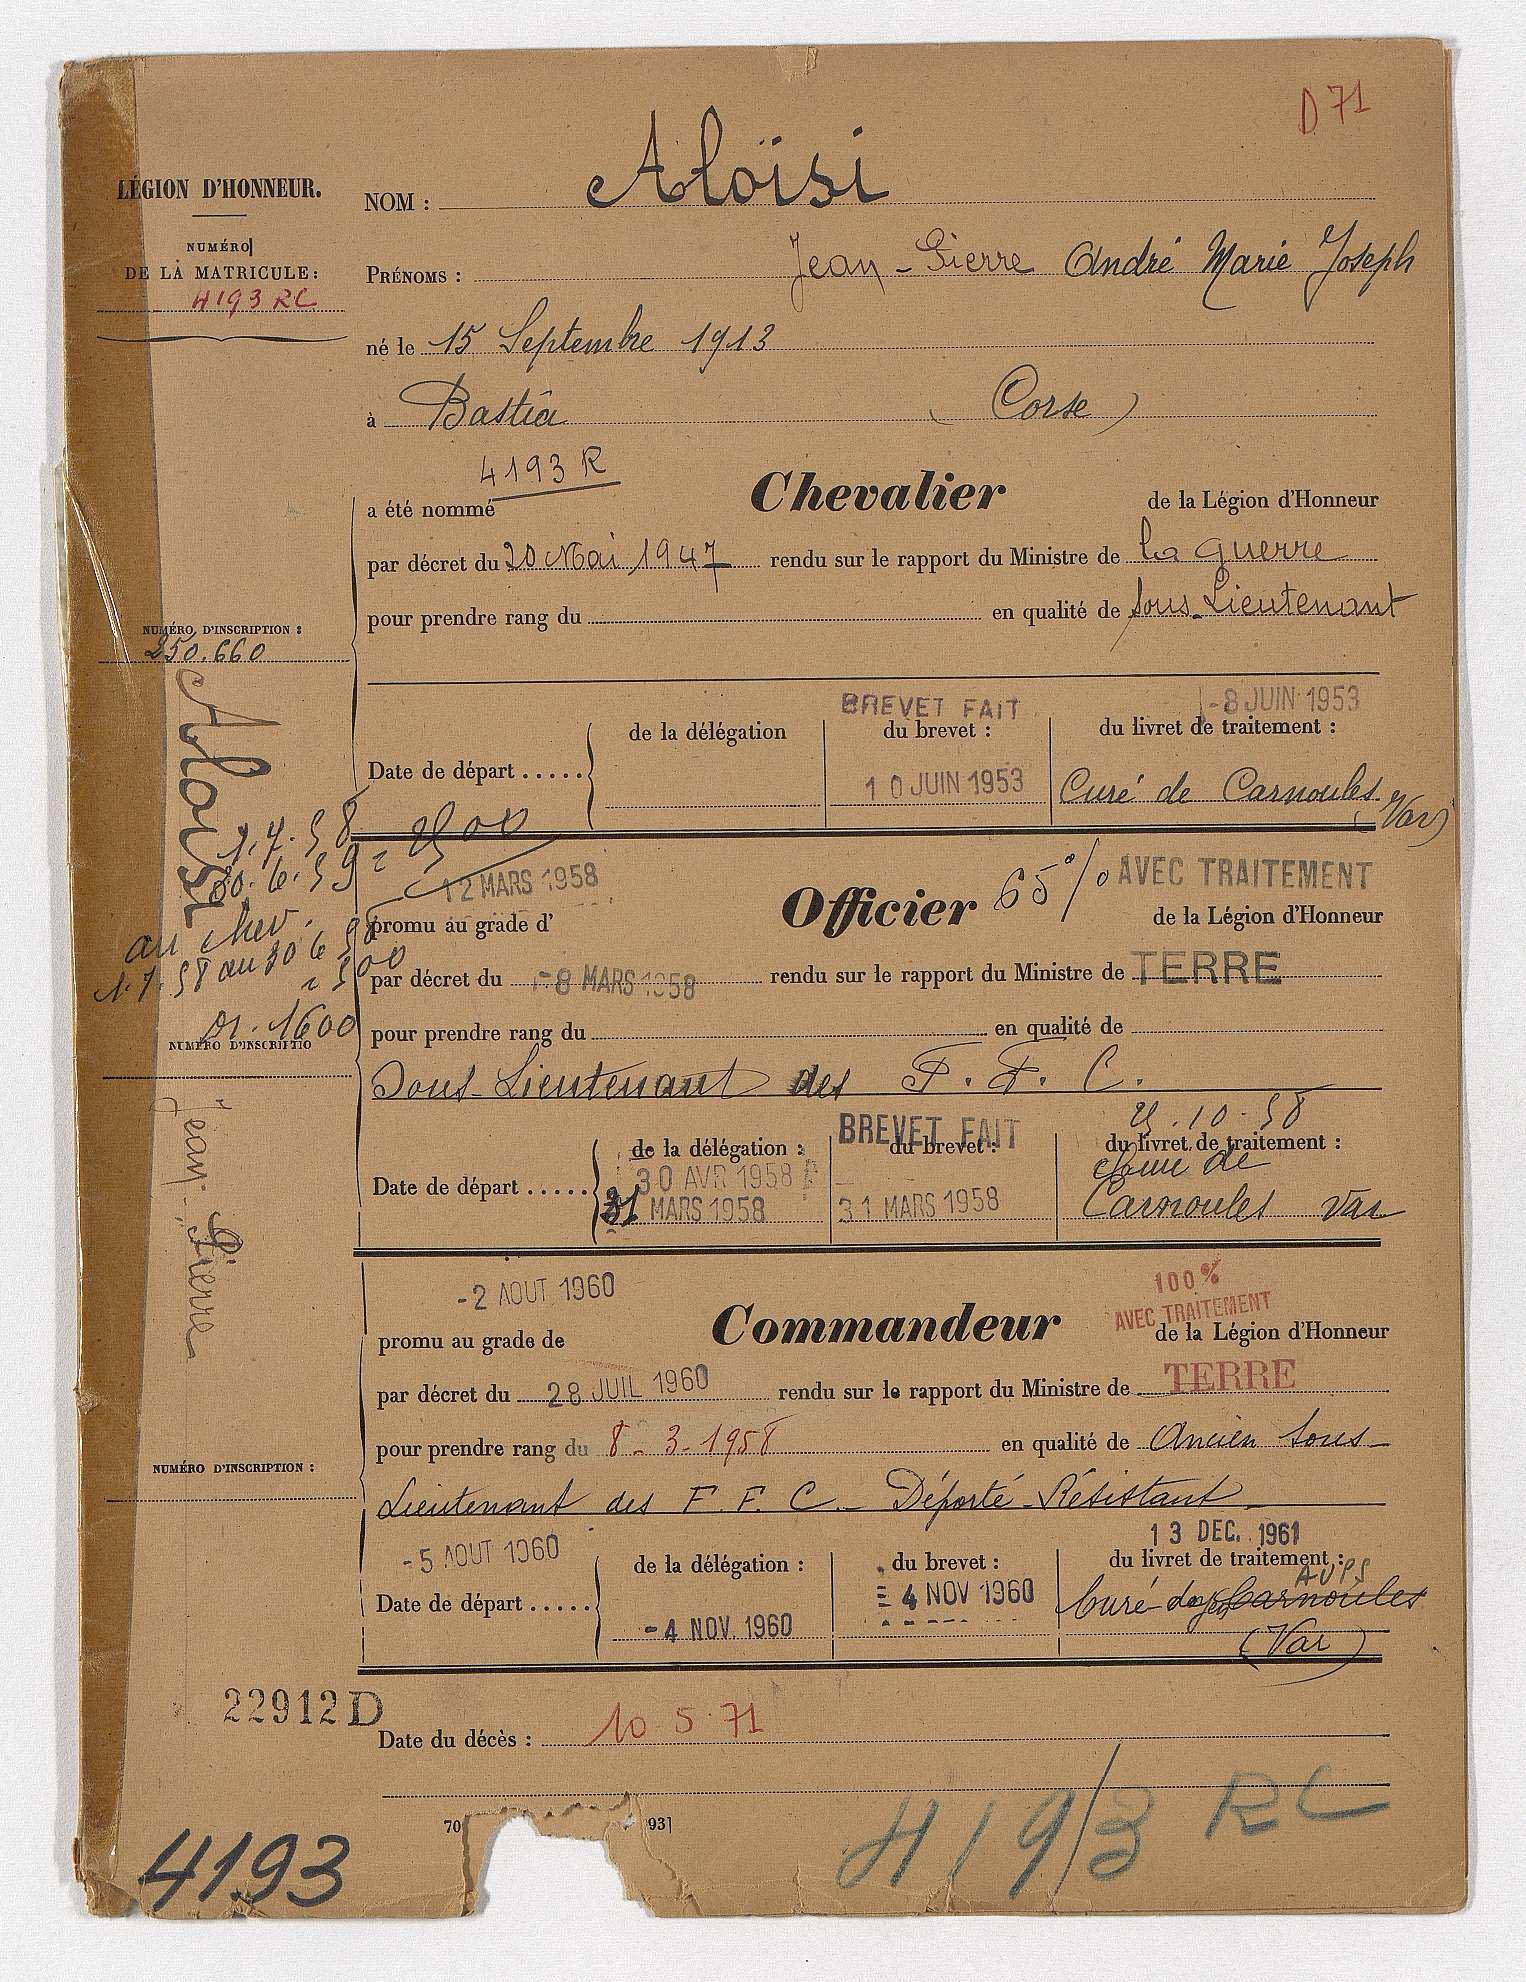 D 71
LÉGION D'HONNEUR.
NUMÉRO
DE LA MATRICULE:
4193 RC
NOM : Aloïsi
PRÉNOMS : Jean-Pierre André Marie Joseph
né le 15 Septembre 1913
à Bastia (Corse)
4193 R
a été nommé Chevalier de la Légion d'Honneur
par décret du 20 Mai 1947 rendu sur le rapport du Ministre de la guerre
pour prendre rang du en qualité de sous-Lieutenant
NUMÉRO D'INSCRIPTION :
250.660
BREVET FAIT -8 JUIN 1953
de la délégation du brevet : du livret de traitement :
Date de départ ..... 10 JUIN 1953 Curé de Carnoules
(Var)
Aloïsi
Jean-Pierre
1.7.58
30.6.59 = 2500
au chev.
1.7.58 au 30 6 59
= 900
Dr. 1600
12 MARS 1958 65% AVEC TRAITEMENT
promu au grade d' Officier de la Légion d'Honneur
par décret du -8 MARS 1958 rendu sur le rapport du Ministre de TERRE
pour prendre rang du en qualité de
NUMÉRO D'INSCRIPTIO
Sous-Lieutenant des F. F. C.
BREVET FAIT 25.10.58
de la délégation : du brevet : du livret de traitement :
30 AVR 1958
Date de départ ..... 31 MARS 1958 31 MARS 1958 Curé de
Carnoules Var
-2 AOUT 1960 100%
AVEC TRAITEMENT
promu au grade de Commandeur de la Légion d'Honneur
par décret du 28 JUIL 1960 rendu sur le rapport du Ministre de TERRE
pour prendre rang du 8-3-1958 en qualité de Ancien Sous-
NUMÉRO D'INSCRIPTION :
Lieutenant des F. F. C.- Déporté-Résistant
-5 AOUT 1960 13 DEC. 1961
de la délégation : du brevet : du livret de traitement :
AUPS
Date de départ ..... -4 NOV. 1960 -4 NOV 1960 Curé de Carnoules
(Var)
22912 D
Date du décès : 10.5.71
70 93]
4193
4193 RC